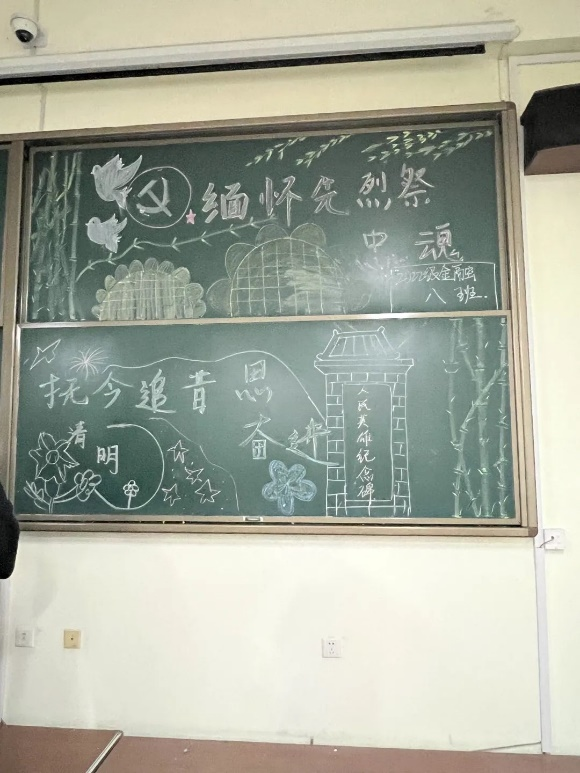 缅怀先烈祭
中魂
级金融
八班.
抚今追昔思
奋进
清明
人民英雄纪念碑